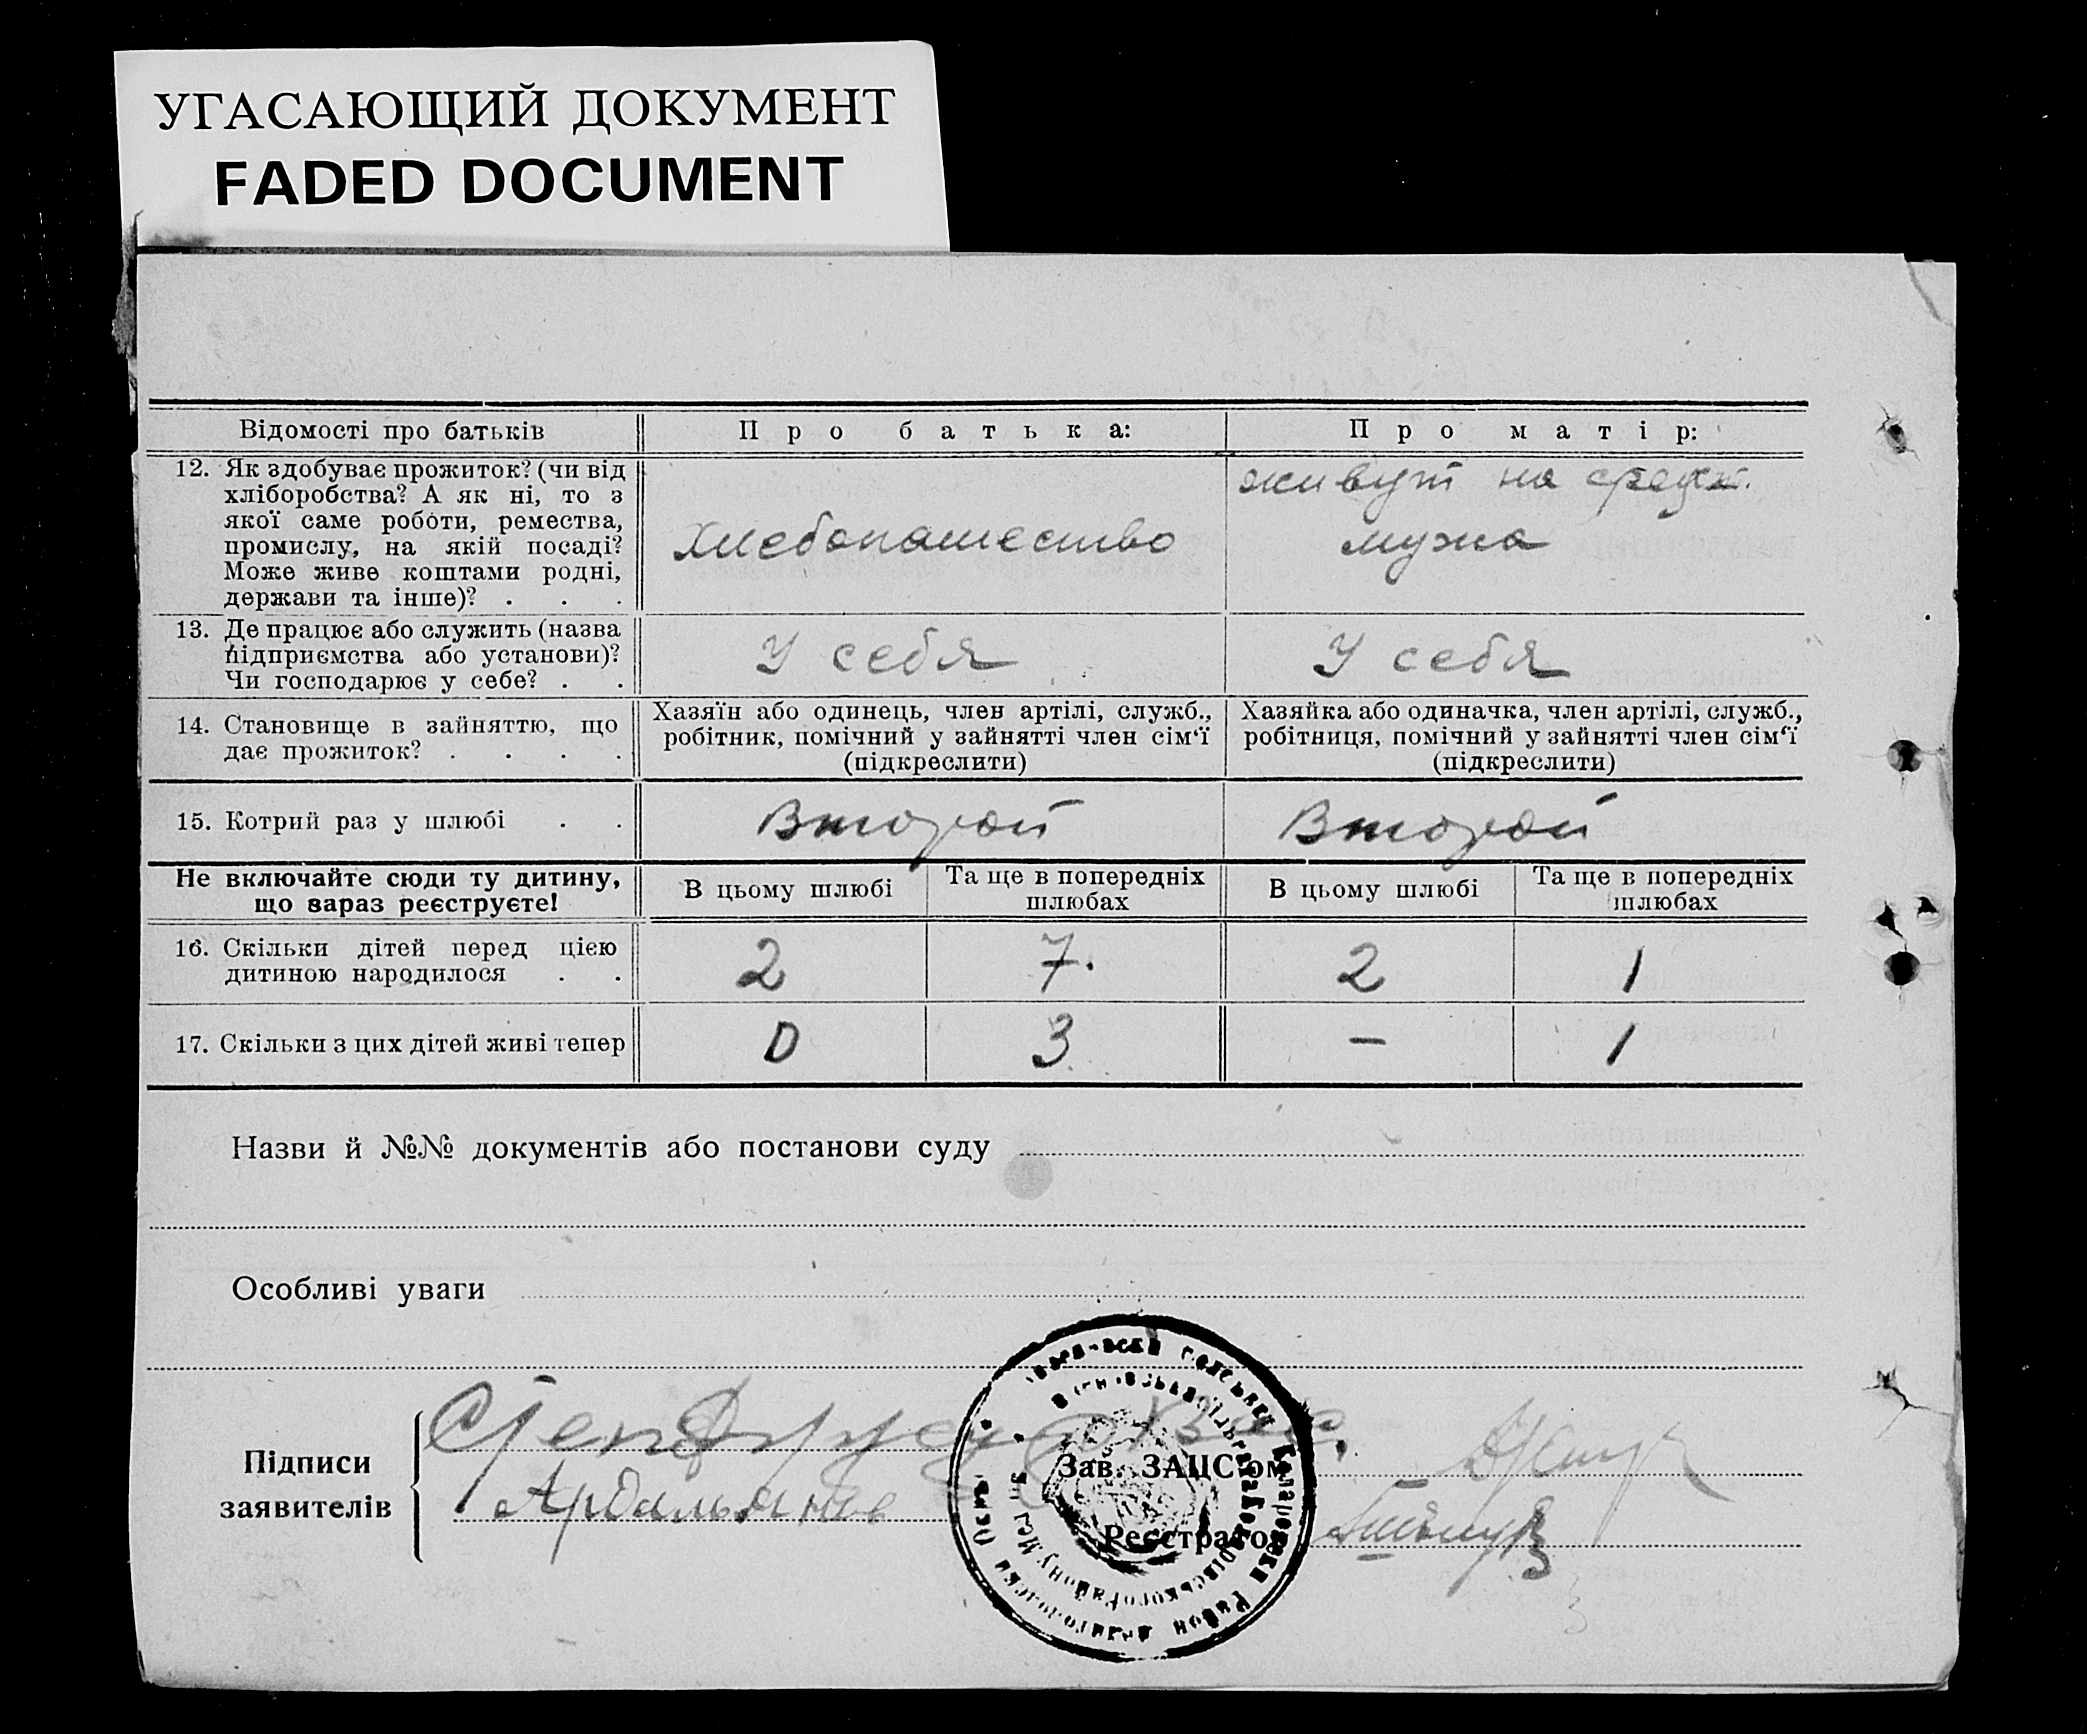 УГАСАЮЩИЙ ДОКУМЕНТ
FADED DOCUMENT
Відомості про батьків
Про батька:
Про матір:
12. Як здобуває прожиток? (чи від
хліборобства? А як ні, то з
якої саме роботи, ремества,
промислу, на якій посаді?
Може живе коштами родні,
держави та інше)? . . .
Хлебопашество
живут на средст.
мужа
13. Де працює або служить (назва
підприємства або установи)?
Чи господарює у себе? . .
У себя
У себя
14. Становище в зайняттю, що
дає прожиток? . . . .
Хазяїн або одинець, член артілі, служб.,
робітник, помічний у зайнятті член сім‘ї
(підкреслити)
Хазяйка або одиначка, член артілі, служб.,
робітниця, помічний у зайнятті член сім‘ї
(підкреслити)
15. Котрий раз у шлюбі . .
Второй
Второй
Не включайте сюди ту дитину,
що вараз реєструєте!
В цьому шлюбі
Та ще в попередніх
шлюбах
В цьому шлюбі
Та ще в попередніх
шлюбах
16. Скільки дітей перед цією
дитиною народилося . .
2
7.
2
1
17. Скільки з цих дітей живі тепер
0
3
-
1
Назви й №№ документів або постанови суду
Особливі уваги
Підписи
заявителів
Зав. ЗАЦС‘ом
Реєстратор